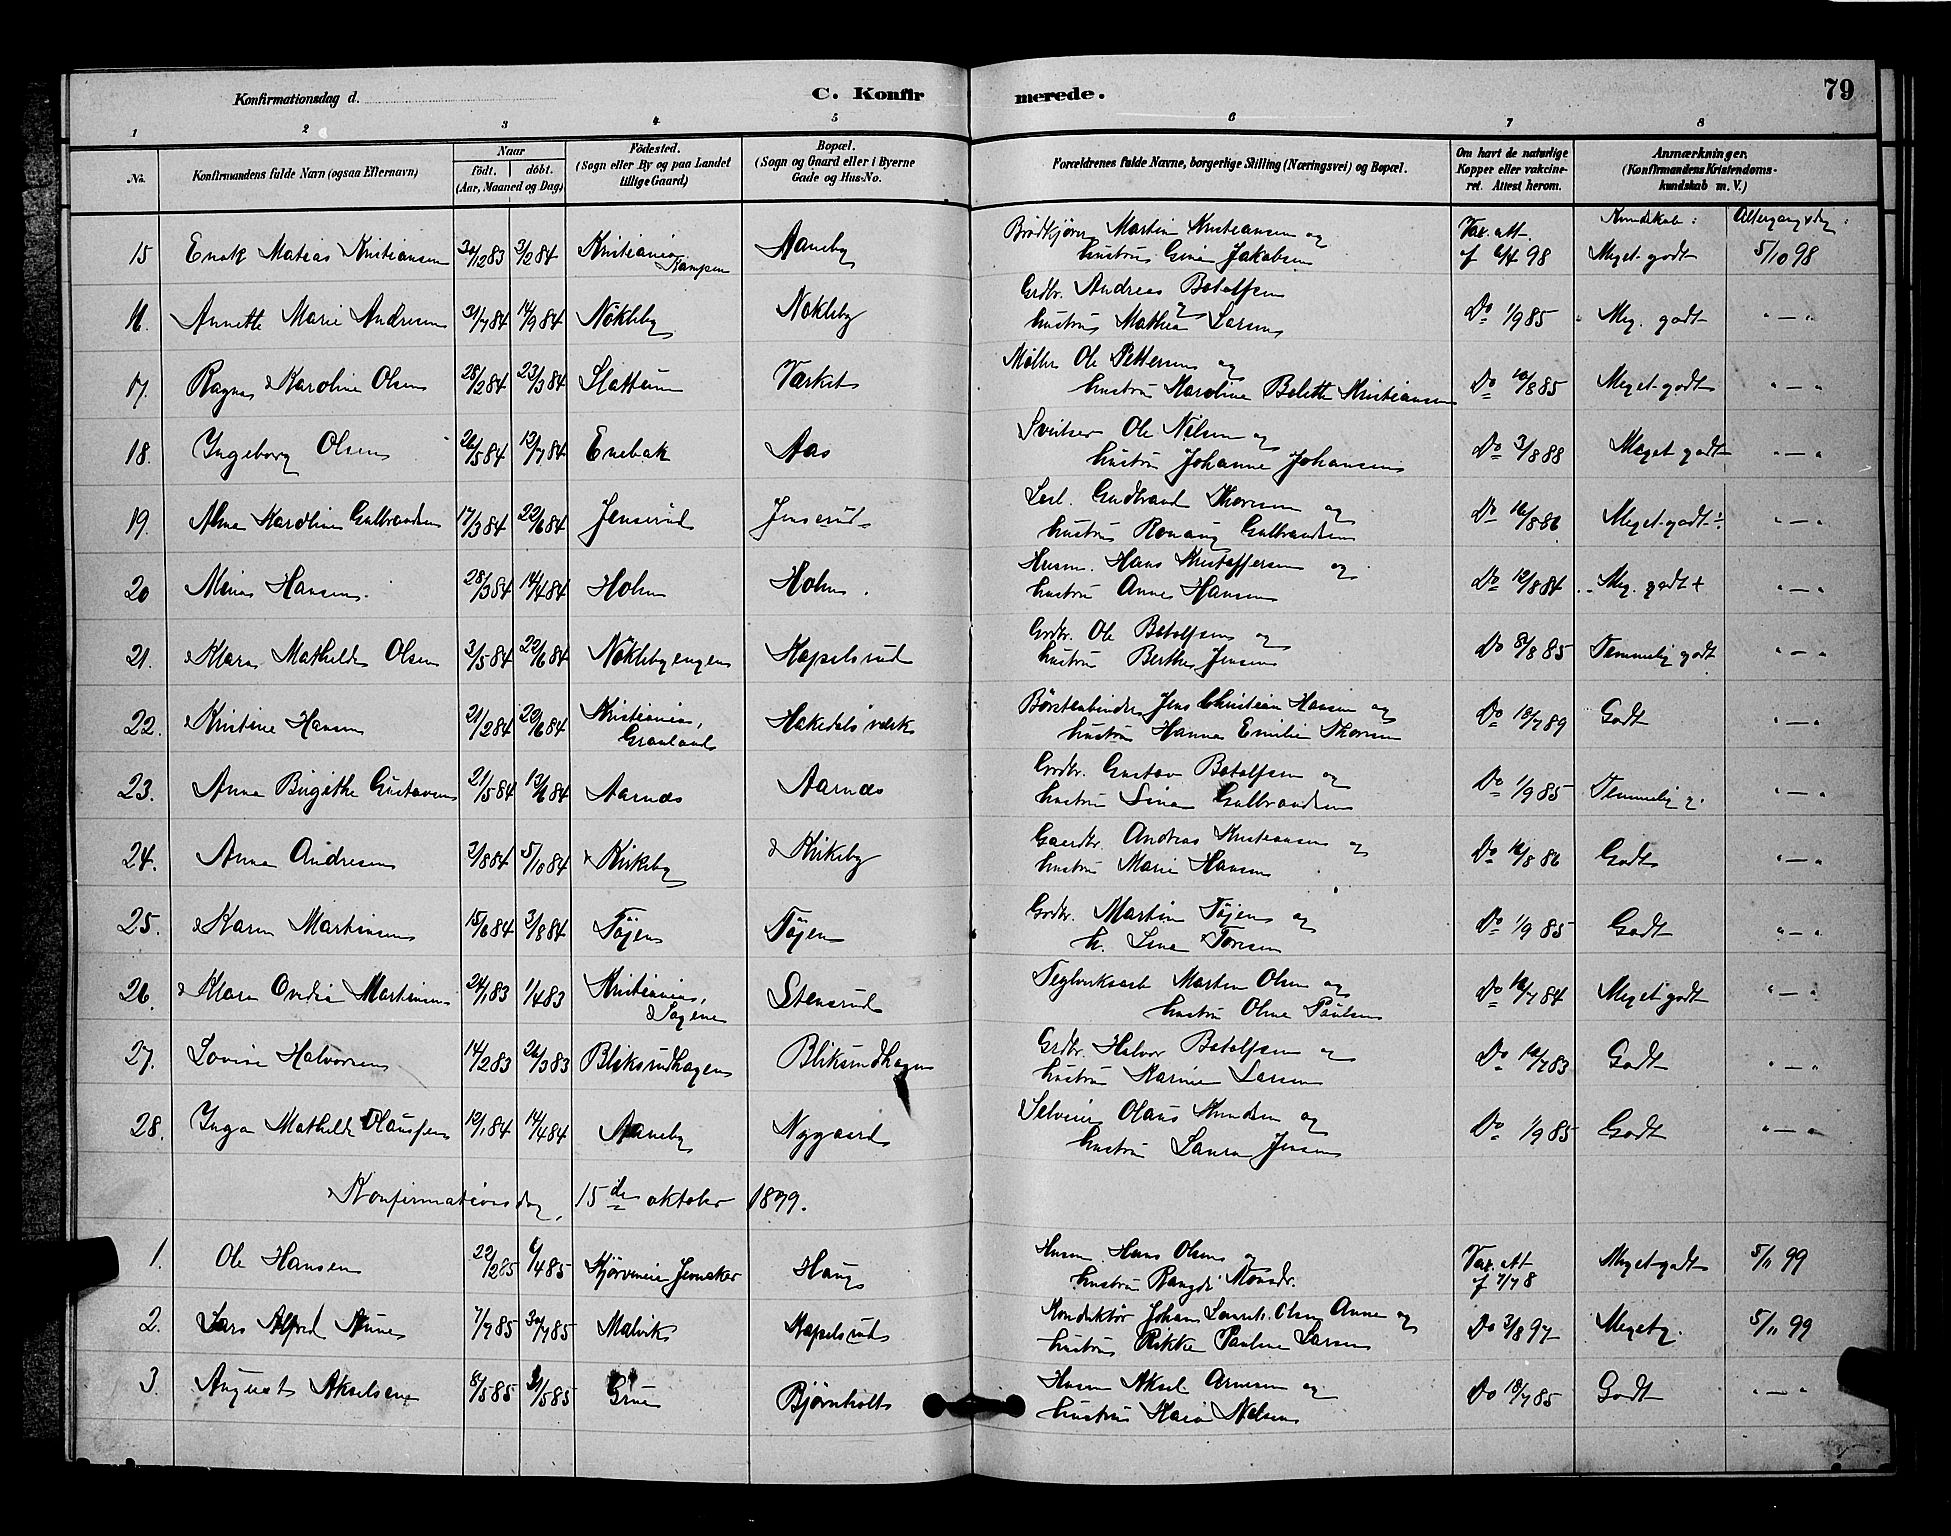 Konfirmationsdag d.
C. Konfirmerede.
79
1 2 3 4 5 6 7 8
No.
Konfirmandens fulde Navn (ogsaa Efternavn)
Naar
født. døbt.
(Aar, Maaned og Dag)
Fødested.
(Sogn eller By og paa Landet
tillige Gaard)
Bopæl.
(Sogn og Gaard eller i Byerne
Gade og Hus-No.
Forældrenes fulde Navne, borgerlige Stilling (Næringsvei) og Bopæl.
Om havt de naturlige
Kopper eller vakcine-
ret. Attest herom.
Anmærkninger.
(Konfirmandens Kristendoms-
kundskab m. V.)
Kundskab: Altergangsdag:
15 Enok Matias Kristiansen 30/12 83 3/2 84 Kristiania Kampen Aaneby
Martin Kristiansen og
hustru Gina Jakobsen
Vax. att. af 6/4 98 Meget godt 5/10 98
16. Annette Marie Andresen 31/7 84 14/9 84 Nökleby Nökleby
Grdbr. Andreas Botolfsen og
hustru Mathea Larsen
Do 1/9 85 Meg. godt " — "
17. Ragna Karoline Olsen 28/2 84 23/3 84 Slattum Værket
Møller Ole Pettersen og
hustru Karoline Belette Kristiansen
Do 10/8 85 Meget godt " — "
18. Ingeborg Olsen 26/5 84 12/7 84 Enebak Aas
Sveitser Ole Nilsen og
hustru Johanne Johansen
Do 3/8 88 Meget godt " — "
19. Alma Karoline Gulbrandsen 17/3 84 22/6 84 Jensrud Jensrud
Gudbrand Thoresen og
hustru Gulbrandsen
Do 16/8 86 Meget godt ÷ " — "
20 Mina Hansen 28/3 84 14/4 84 Holm Holm.
Husm. Hans Kristoffersen og
hustru Anne Hansen
Do 12/8 84 Meg. godt + " — "
21. Klara Mathilde Olsen 3/5 84 22/6 84 Nöklebyengen Kapelsrud
Grdbr. Ole Botolfsen og
hustru Berthe Jensen
Do 8/8 85 Temmelig godt " — "
22. Kristine Hansen 21/2 84 22/6 84 Kristiania, Grønland Hakedals værk
Børstenbinder Jens Christian Hansen og
hustru Hanna Emilie Thoresen
Do 18/7 89 Godt " — "
23. Anna Birgithe Gustavsen 21/5 84 13/6 84 Aarnæs Aarnæs
Grdbr. Gustav Botolfsen og
hustru Lina Gulbrandsen
Do 1/9 85 Temmelig g. " — "
24. Anna Andresen 3/8 84 5/10 84 Kirkeby Kirkeby
Gaardbr. Andreas Kristiansen og
hustru Marie Hansen
Do 16/8 86 Godt " — "
25. Karen Martinsen 15/6 84 3/8 84 Töjen Töjen
Grdbr. Martin Töjen og
h. Lina Toresen
Do 1/9 85 Godt " — "
26. Klara Ovidia Martinsen 24/1 83 1/4 83 Kristiania, Sagene Stensrud
Teglverksarb. Martin Olsen og
hustru Oline Paulsen
Do 16/7 84 Meget godt " — "
27. Lovise Halvorsen 14/2 83 26/3 83 Bliksrudhagen Bliksrudhagen
Grdbr. Halvor Botolfsen og
hustru Karine Larsen
Do 16/7 83 Godt " — "
28. Inga Mathilde Olaussen 12/1 84 14/4 84 Aaneby Nygaard
Selveier Olaus Knudsen og
hustru Laura Jensen
Do 1/9 85 Godt " — "
Konfirmationsdag, 15de oktober 1899.
1. Ole Hansen 22/2 85 6/4 85 Jevnaker Haug
Husm. Hans Olsen og
hustru
Vax. att. af 7/7 8 Meget godt 5/11 99
2. Lars Alfred Aune 7/7 85 30/7 85 Malvik Kapelsrud
Konduktør Johan Laurits Olsen Aune og
hustru Rikke Pauline Larsen
Do 3/8 97 Meget g. 5/11 99
3. August Akselsen 8/5 85 31/5 85 Grue Bjørnholt
Husm Aksel Arnesen og
hustru Kari Nilsen
Do 18/7 85 Godt " — "